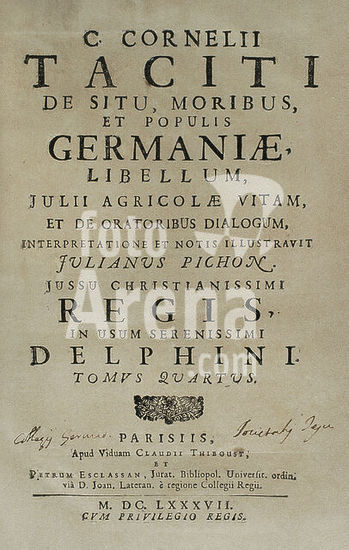 C. CORNELII
TACITI
DE SITU, MORIBUS,
ET POPULIS
GERMANIÆ,
LIBELLUM,
JULII AGRICOLÆ VITAM,
ET DE ORATORIBUS DIALOGUM,
INTERPRETATIONE ET NOTIS ILLUSTRAVIT
JULIANUS PICHON.
JUSSU CHRISTIANISSIMI
REGIS,
IN USUM SERENISSIMI
DELPHINI.
TOMVS QUARTUS.
foto
Arena
.com
Collegij Societatis Jesu
PARISIIS,
Apud Viduam CLAUDII THIBOUST,
ET
PETRUM ESCLASSAN, Jurat. Bibliopol. Universit. ordin.
viâ D. Joan. Lateran. è regione Collegii Regii.
M. DC. LXXXVII.
CVM PRIVILEGIO REGIS.